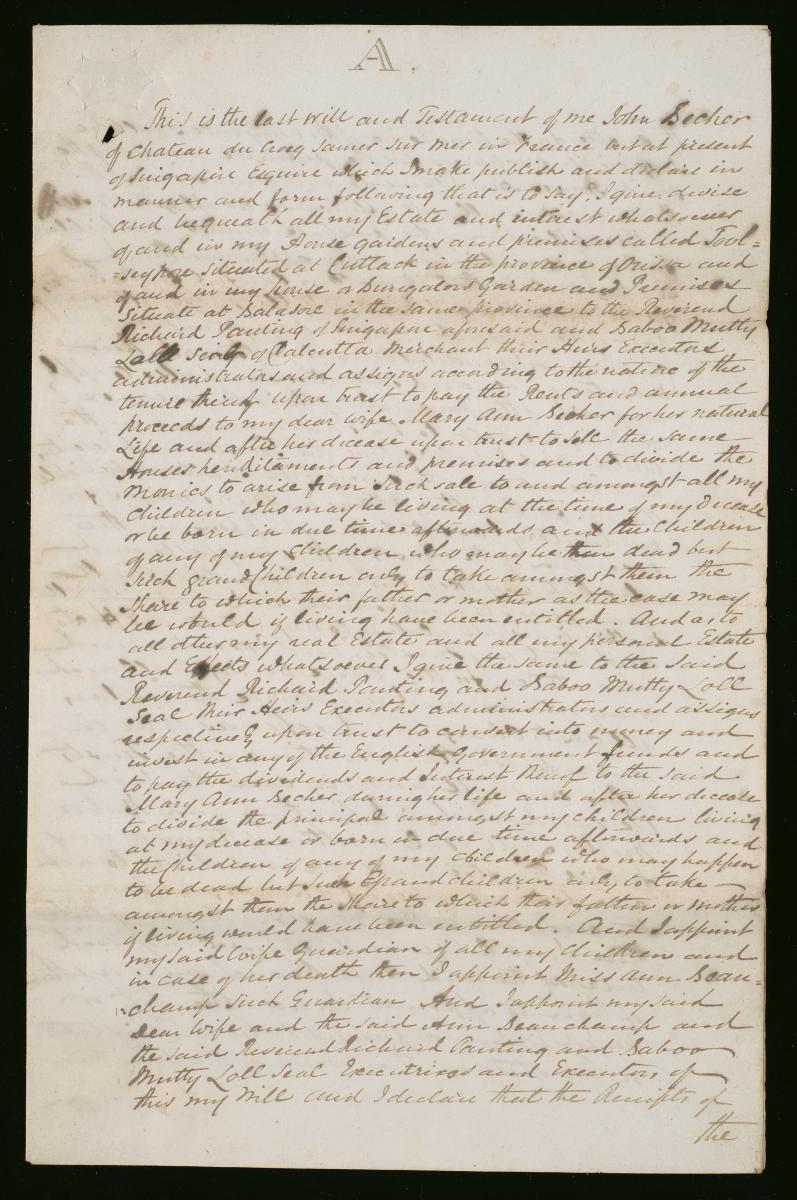 A.
This is the last Will and Testament of me John Becher
of Chateau du Crocq Samer sur mer in France but at present
of Singapore Esquire which I make publish and declare in
manner and form following that is to say. I give devise
and bequeath all my Estate and interest whatsoever
of and in my House gardens and premises called Tool=
=seypore situated at Cuttack in the province of Orissa and
of and in my House or Bungalow Garden and Premises
situate at Balasore in the same province to the Reverend
Richard Panting of Singapore aforesaid and Baboo Mutty
Loll Seal of Calcutta Merchant their Heirs Executors
administrators and assigns according to the nature of the
tenure thereof upon trust to pay the Rents and annual
proceeds to my dear wife Mary Ann Becher for her natural
Life and after her decease upon trust to sell the same
Houses hereditaments and premises and to divide the
monies to arise from such sale to and amongst all my
children who may be living at the time of my decease
or be born in due time afterwards and the Children
of any of my Children who may be then dead but
such grandchildren only to take amongst them the
share to which their father or mother as the case may
be would if living have been entitled. And as to
all other my real Estate and all my personal Estate
and Effects whatsoever I give the same to the said
Reverend Richard Panting and Baboo Mutty Loll
Seal their Heirs Executors administrators and assigns
respectively upon trust to convert into money and
invest in any of the English Government funds and
to pay the dividends and Interest thereof to the said
Mary Ann Becher during her life and after her decease
to divide the principal amongst my children living
at my decease or born in due time afterwards and
the Children of any of my children who may happen
to be dead but such Grandchildren only to take
amongst them the share to which their father or mother
if living would have been entitled. And I appoint
my said Wife Guardian of all my Children and
in case of her death then I appoint Miss Ann Beau=
=champ such Guardian And I appoint my said
dear Wife and the said Ann Beauchamp and
the said Reverend Richard Panting and Baboo
Mutty Loll Seal Executrixes and Executors of
this my Will and I declare that the Receipts of
the